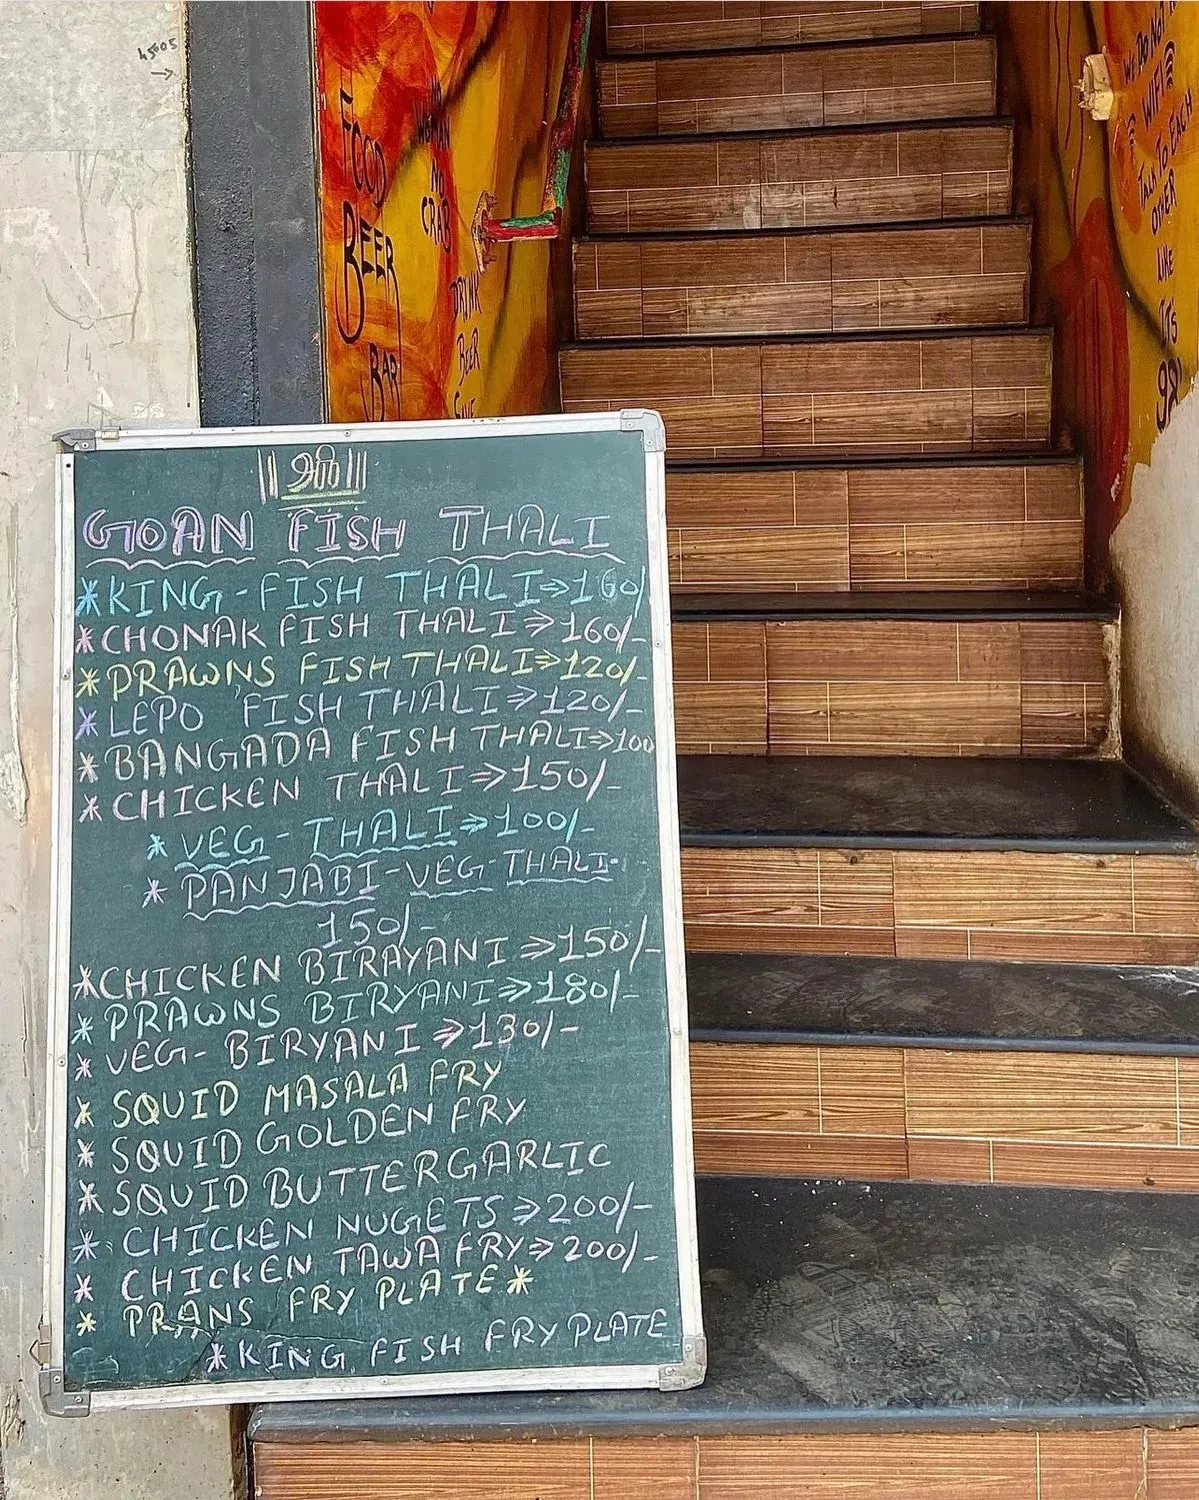 45505
→
FOOD
BEER
BAR
NO
CRAB
DRINK
BEER
We Do Not
WIFI
Talk To Each
Other
Like
Its
|| श्री ||
GOAN FISH THALI
*KING-FISH THALI⇒160/
*CHONAK FISH THALI⇒160/-
*PRAWNS FISH THALI⇒120/-
*LEPO FISH THALI⇒120/-
*BANGADA FISH THALI⇒100
*CHICKEN THALI⇒150/-
*VEG-THALI⇒100/-
*PANJABI-VEG-THALI-
150/-
*CHICKEN BIRAYANI⇒150/-
*PRAWNS BIRYANI⇒180/-
*VEG-BIRYANI⇒130/-
*SQUID MASALA FRY
*SQUID GOLDEN FRY
*SQUID BUTTERGARLIC
*CHICKEN NUGETS⇒200/-
*CHICKEN TAWA FRY⇒200/-
*PRANS FRY PLATE*
*KING FISH FRY PLATE